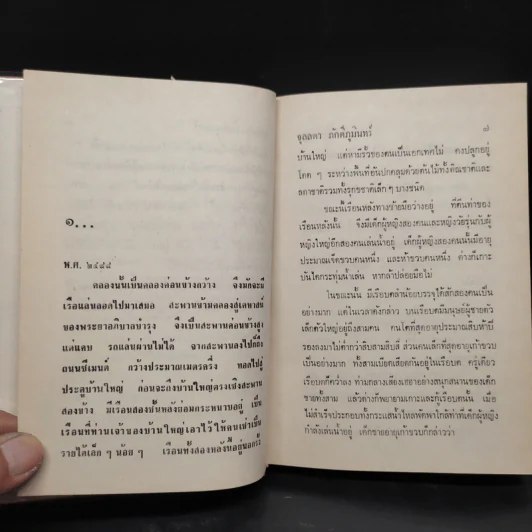 ๑...
พ.ศ. ๒๔๘๘
คลองนั้นเป็นคลองค่อนข้างกว้าง จึงมักจะมี
เรือแล่นลอดไปมาเสมอ สะพานข้ามคลองสู่เคหาสน์
ของพระยาอภิบาลบำรุง จึงเป็นสะพานค่อนข้างสูง
แต่แคบ รถแล่นผ่านไม่ได้ จากสะพานลงไปก็ถึง
ถนนซีเมนต์ กว้างประมาณเมตรครึ่ง ทอดไปสู่
ประตูบ้านใหญ่ ก่อนจะถึงบ้านใหญ่ตรงเชิงสะพาน
สองข้าง มีเรือนสองชั้นหลังย่อมกระหนาบอยู่ เป็น
เรือนที่ท่านเจ้าของบ้านใหญ่เอาไว้ให้คนเช่าเป็น
รายได้เล็ก ๆ น้อย ๆ เรือนทั้งสองหลังที่อยู่นอกรั้ว
จุลลดา ภักดีภูมินทร์
๘
บ้านใหญ่ แต่หามีรั้วของตนเป็นเอกเทศไม่ คงปลูกอยู่
โดด ๆ ระหว่างพื้นที่อันปกคลุมด้วยต้นไม้ทั้งคณิชาติและ
ลดาชาติรวมทั้งรุกขชาติเล็ก ๆ บางชนิด
ขณะนี้เรือนหลังทางซ้ายมือว่างอยู่ ที่ตีนท่าของ
เรือนหลังนั้น จึงมีเด็กผู้หญิงสองคนและหญิงวัยรุ่นกับผู้
หญิงใหญ่อีกสองคนเล่นน้ำอยู่ เด็กผู้หญิงสองคนนั้นมีอายุ
ประมาณเจ็ดขวบคนหนึ่ง และห้าขวบคนหนึ่ง ต่างก็เกาะ
บันไดกระทุ่มน้ำเล่น หากล้าปล่อยมือไม่
ในขณะนั้น มีเรือบดลำน้อยบรรจุได้สักสองคนเป็น
อย่างมาก แต่ในเวลาดังกล่าว บนเรือบดมีมนุษย์ผู้ชายตัว
เล็กตัวใหญ่อยู่ถึงสามคน คนโตที่สุดอายุประมาณสิบห้าปี
รองลงมาไม่ต่ำกว่าสิบสามสิบสี่ ส่วนคนเล็กที่สุดอายุเก้าขวบ
เป็นอย่างมาก ทั้งสามเบียดเสียดกันอยู่ในเรือบด ครู่เดียว
เรือบดก็คว่ำลง ท่ามกลางเสียงเฮฮาอย่างสนุกสนานของเด็ก
ชายทั้งสาม แล้วต่างก็พยายามเกาะและกู้เรือบดนั้น เมื่อ
ไม่สำเร็จประกอบทั้งกระแสน้ำไหลพัดพาใกล้ท่าที่เด็กผู้หญิง
กำลังเล่นน้ำอยู่ เด็กชายอายุเก้าขวบก็กล่าวว่า